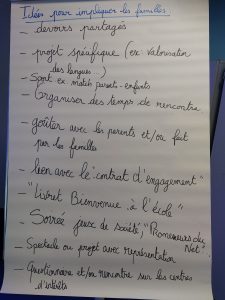 Idées pour impliquer les familles
- devoirs partagés
- projet spécifique (ex: valorisation
des langues...)
- Sport ex: matchs parents-enfants
- Organiser des temps de rencontre
- goûter avec les parents et/ou fait
par les familles
- lien avec le "contrat d'engagement"
- "Livret Bienvenue à l'école"
- Soirée jeux de société, "Promeneurs du
Net"
- Spectacle ou projet avec représentation
- Questionnaire et/ou rencontre sur les centres
d'intérêts